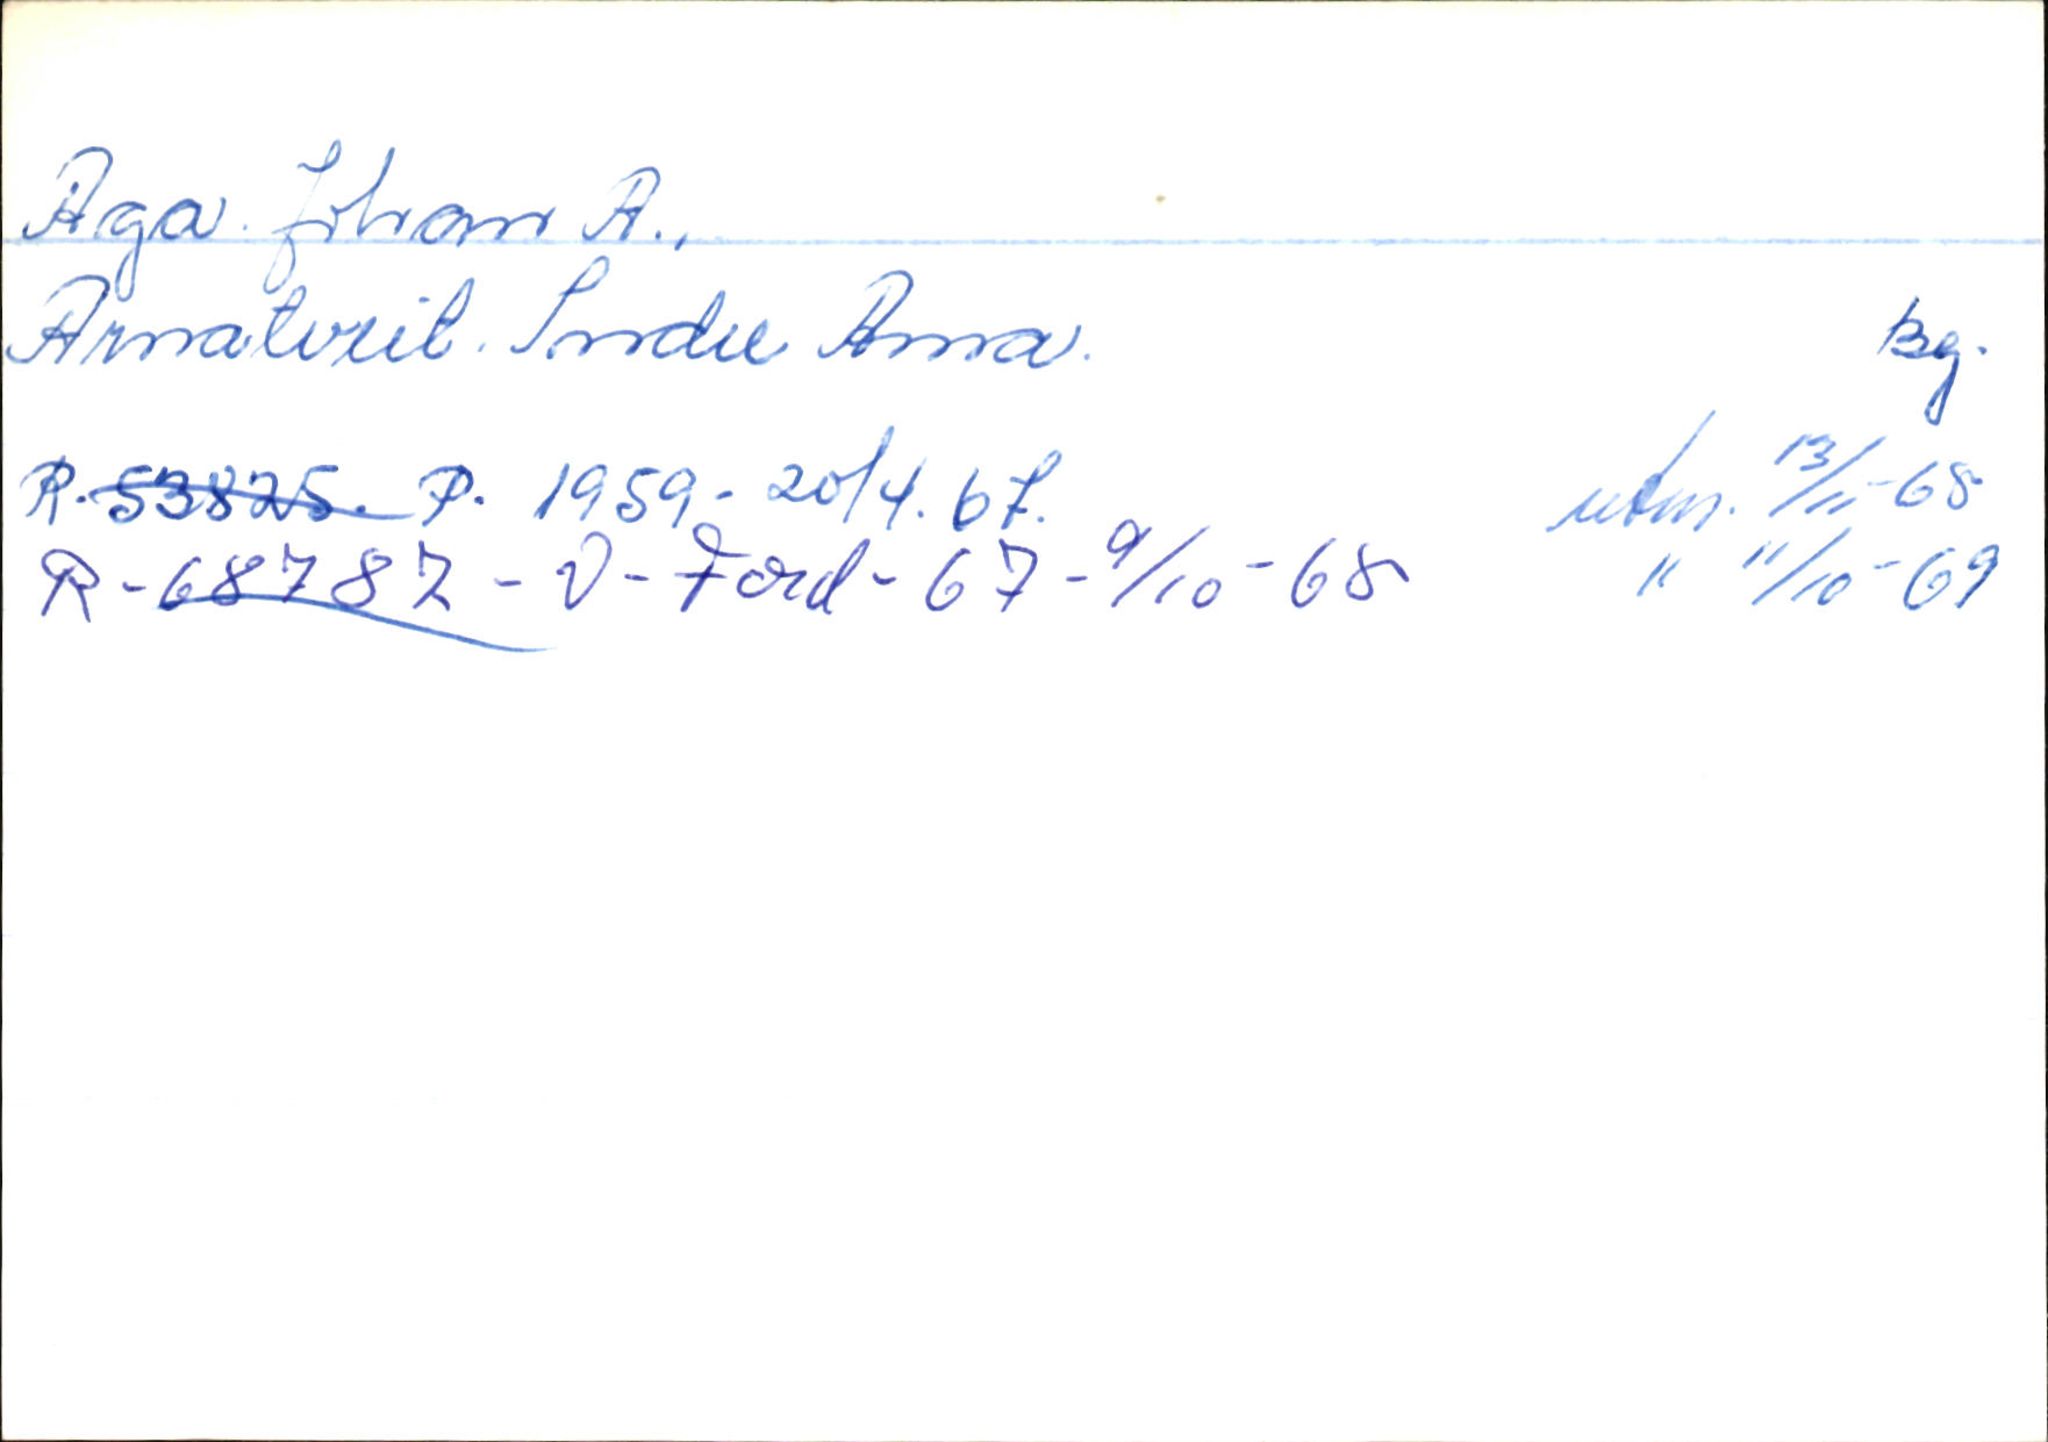 Aga Johan A.,
Arnatveit. Indre Arna. Bg.
R. 53825. P. 1959 - 20/4. 67. utm. 13/11-68
R-68787 - V - Ford - 67 - 9/10-68 " 11/10-69